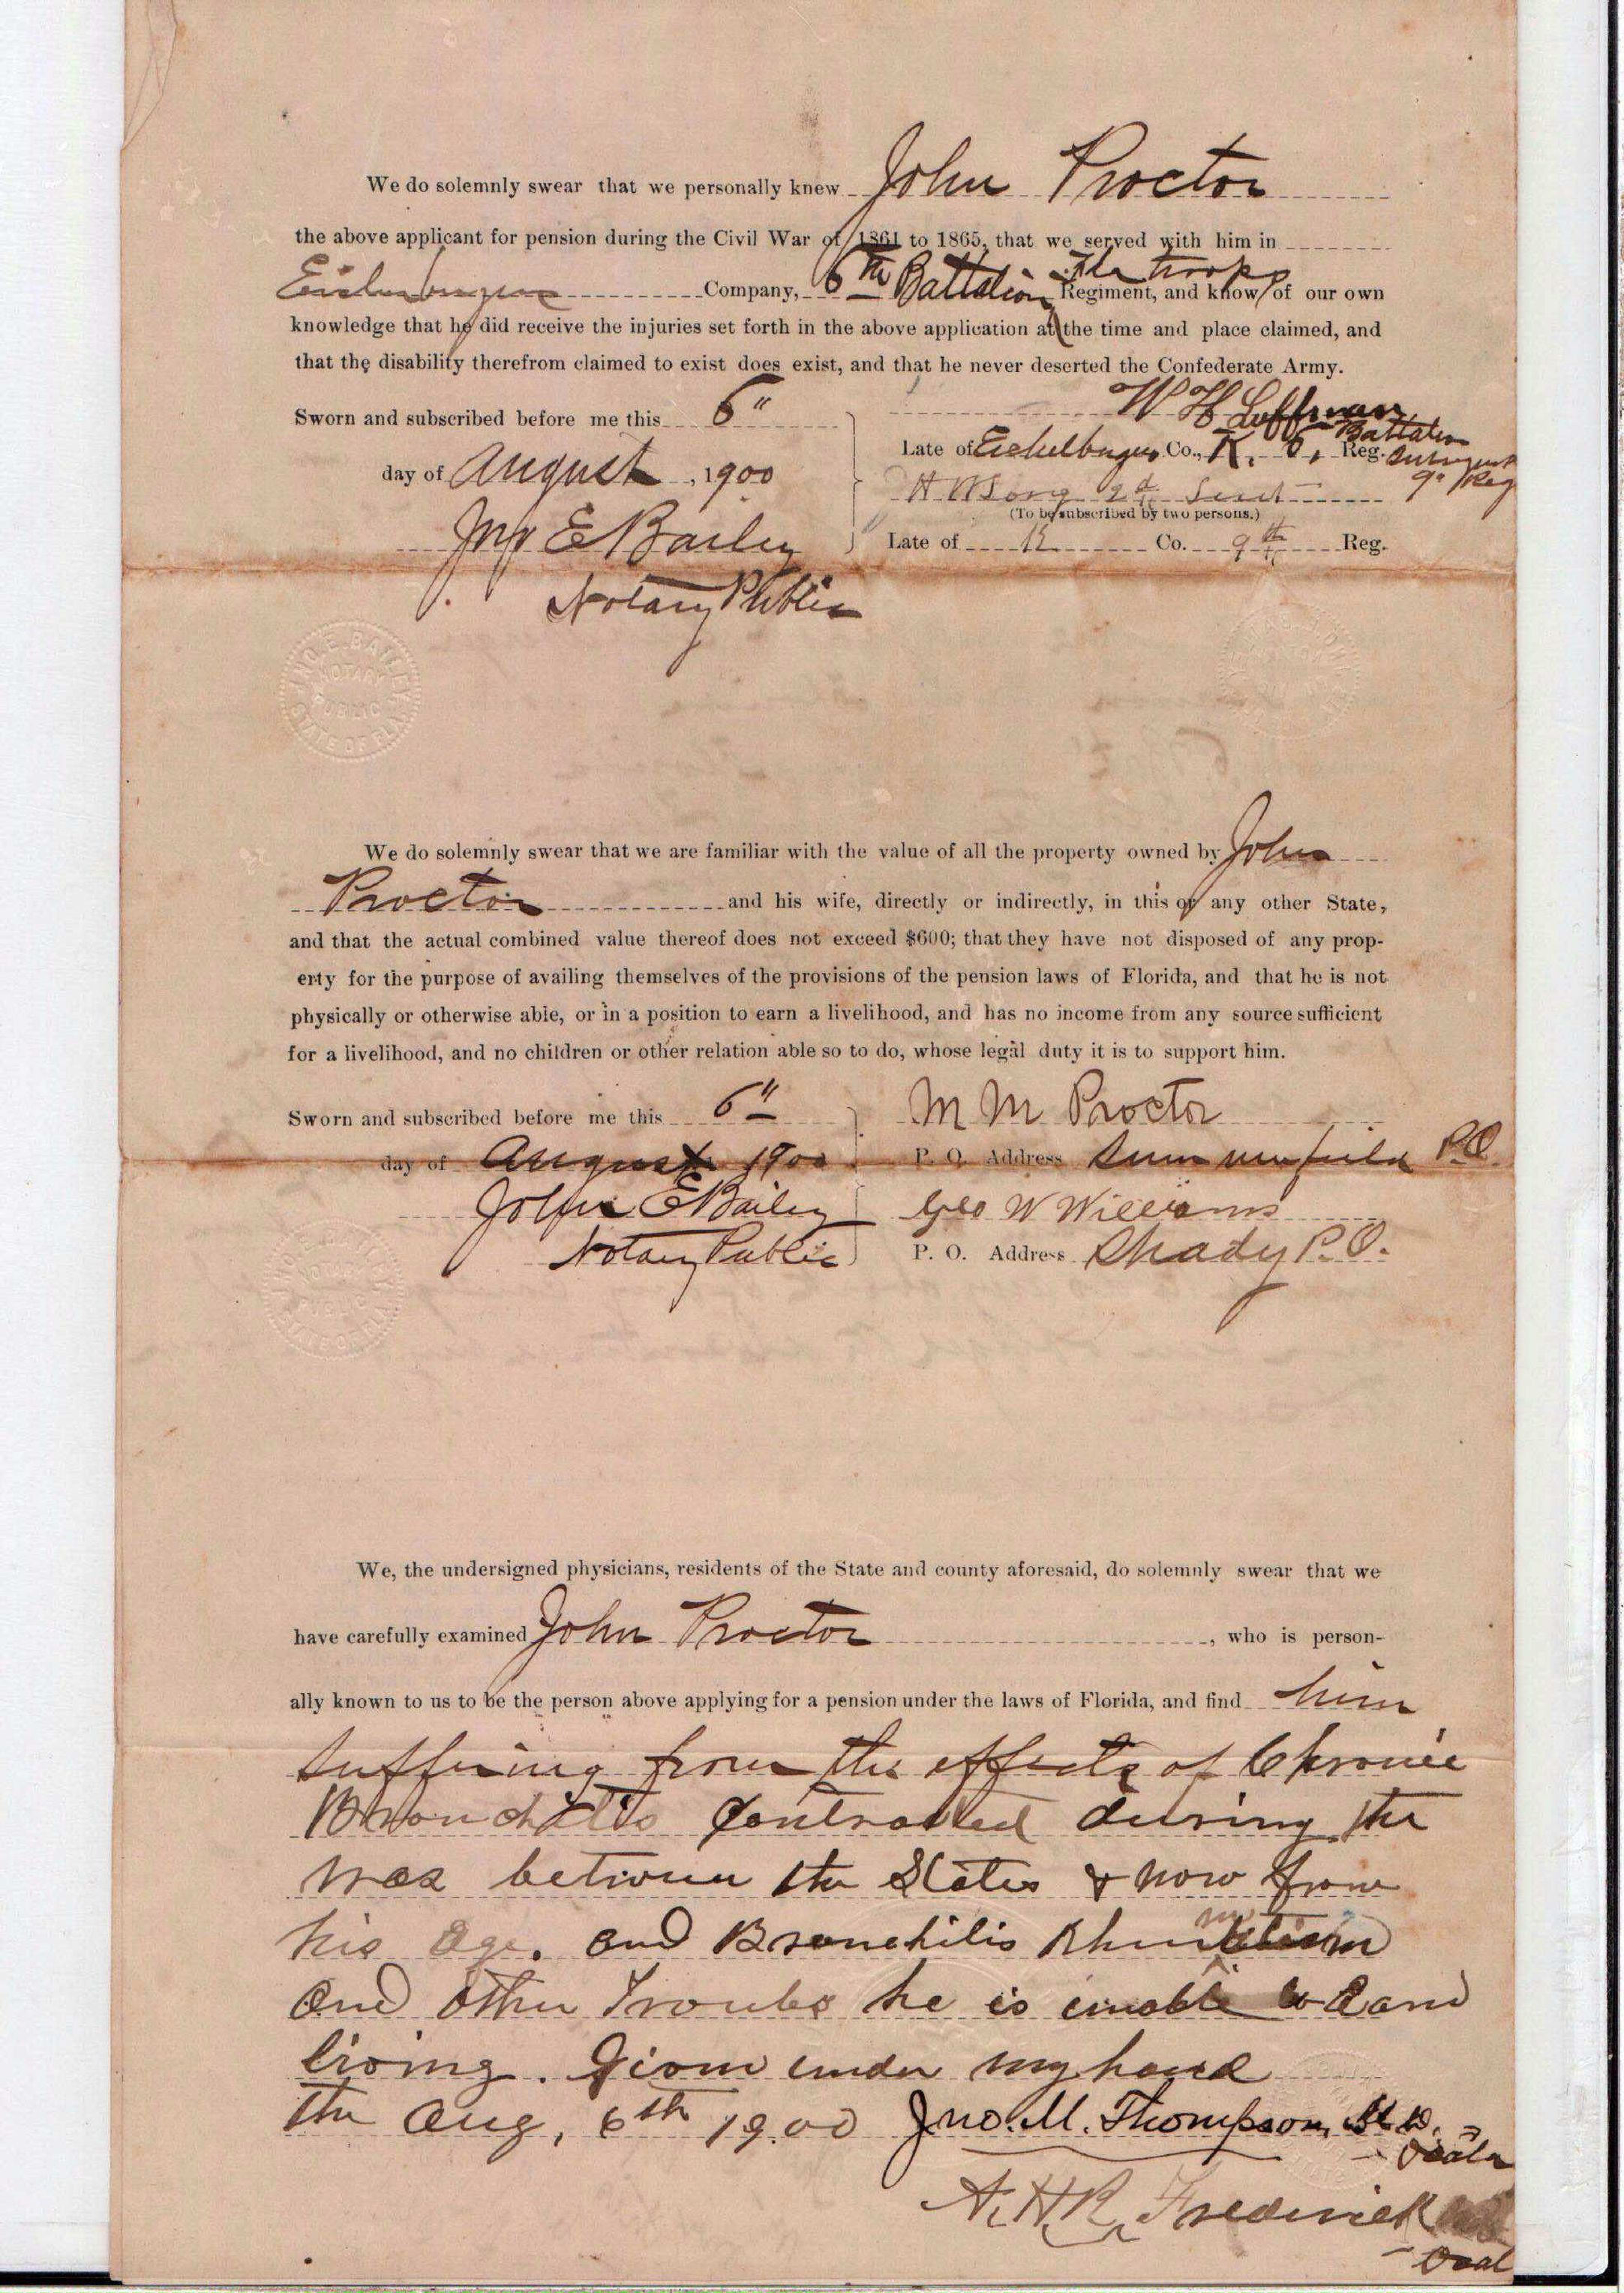 We do solemnly swear that we personally knew John Proctor
the above applicant for pension during the Civil War of 1861 to 1865, that we served with him in
Company, 6th Battalion Fla troops Regiment, and know of our own
knowledge that he did receive the injuries set forth in the above application at the time and place claimed, and
that the disability therefrom claimed to exist does exist, and that he never deserted the Confederate Army.
Sworn and subscribed before me this 6"
day of August, 1900
Jno E Bailey
Notary Public
W H Luffman
Late of Eichelburger Co., K. 6, Battalion Reg.
9" Reg
H W Long 2d Lieut
(To be subscribed by two persons.)
Late of K Co. 9th Reg.
JNO. E. BAILEY
NOTARY
PUBLIC
STATE OF FLA.
We do solemnly swear that we are familiar with the value of all the property owned by John
Proctor and his wife, directly or indirectly, in this or any other State,
and that the actual combined value thereof does not exceed $600; that they have not disposed of any prop-
erty for the purpose of availing themselves of the provisions of the pension laws of Florida, and that he is not
physically or otherwise able, or in a position to earn a livelihood, and has no income from any source sufficient
for a livelihood, and no children or other relation able so to do, whose legal duty it is to support him.
Sworn and subscribed before me this 6"
day of August 1900
John E Bailey
Notary Public
M M Proctor
P. O. Address Summerfield P.O.
Geo W Williams
P. O. Address Shady P.O.
We, the undersigned physicians, residents of the State and county aforesaid, do solemnly swear that we
have carefully examined John Proctor, who is person-
ally known to us to be the person above applying for a pension under the laws of Florida, and find him
suffering from the effects of Chronic
Bronchitis contracted during the
war between the States & now from
his age. and Bronchitis Rhumatism
and other Troubles he is unable to
living. Given under my hand
the Aug, 6th 19.00 Jno. M. Thompson, M.D.
Ocala
A. H. R. Frederick
Ocal